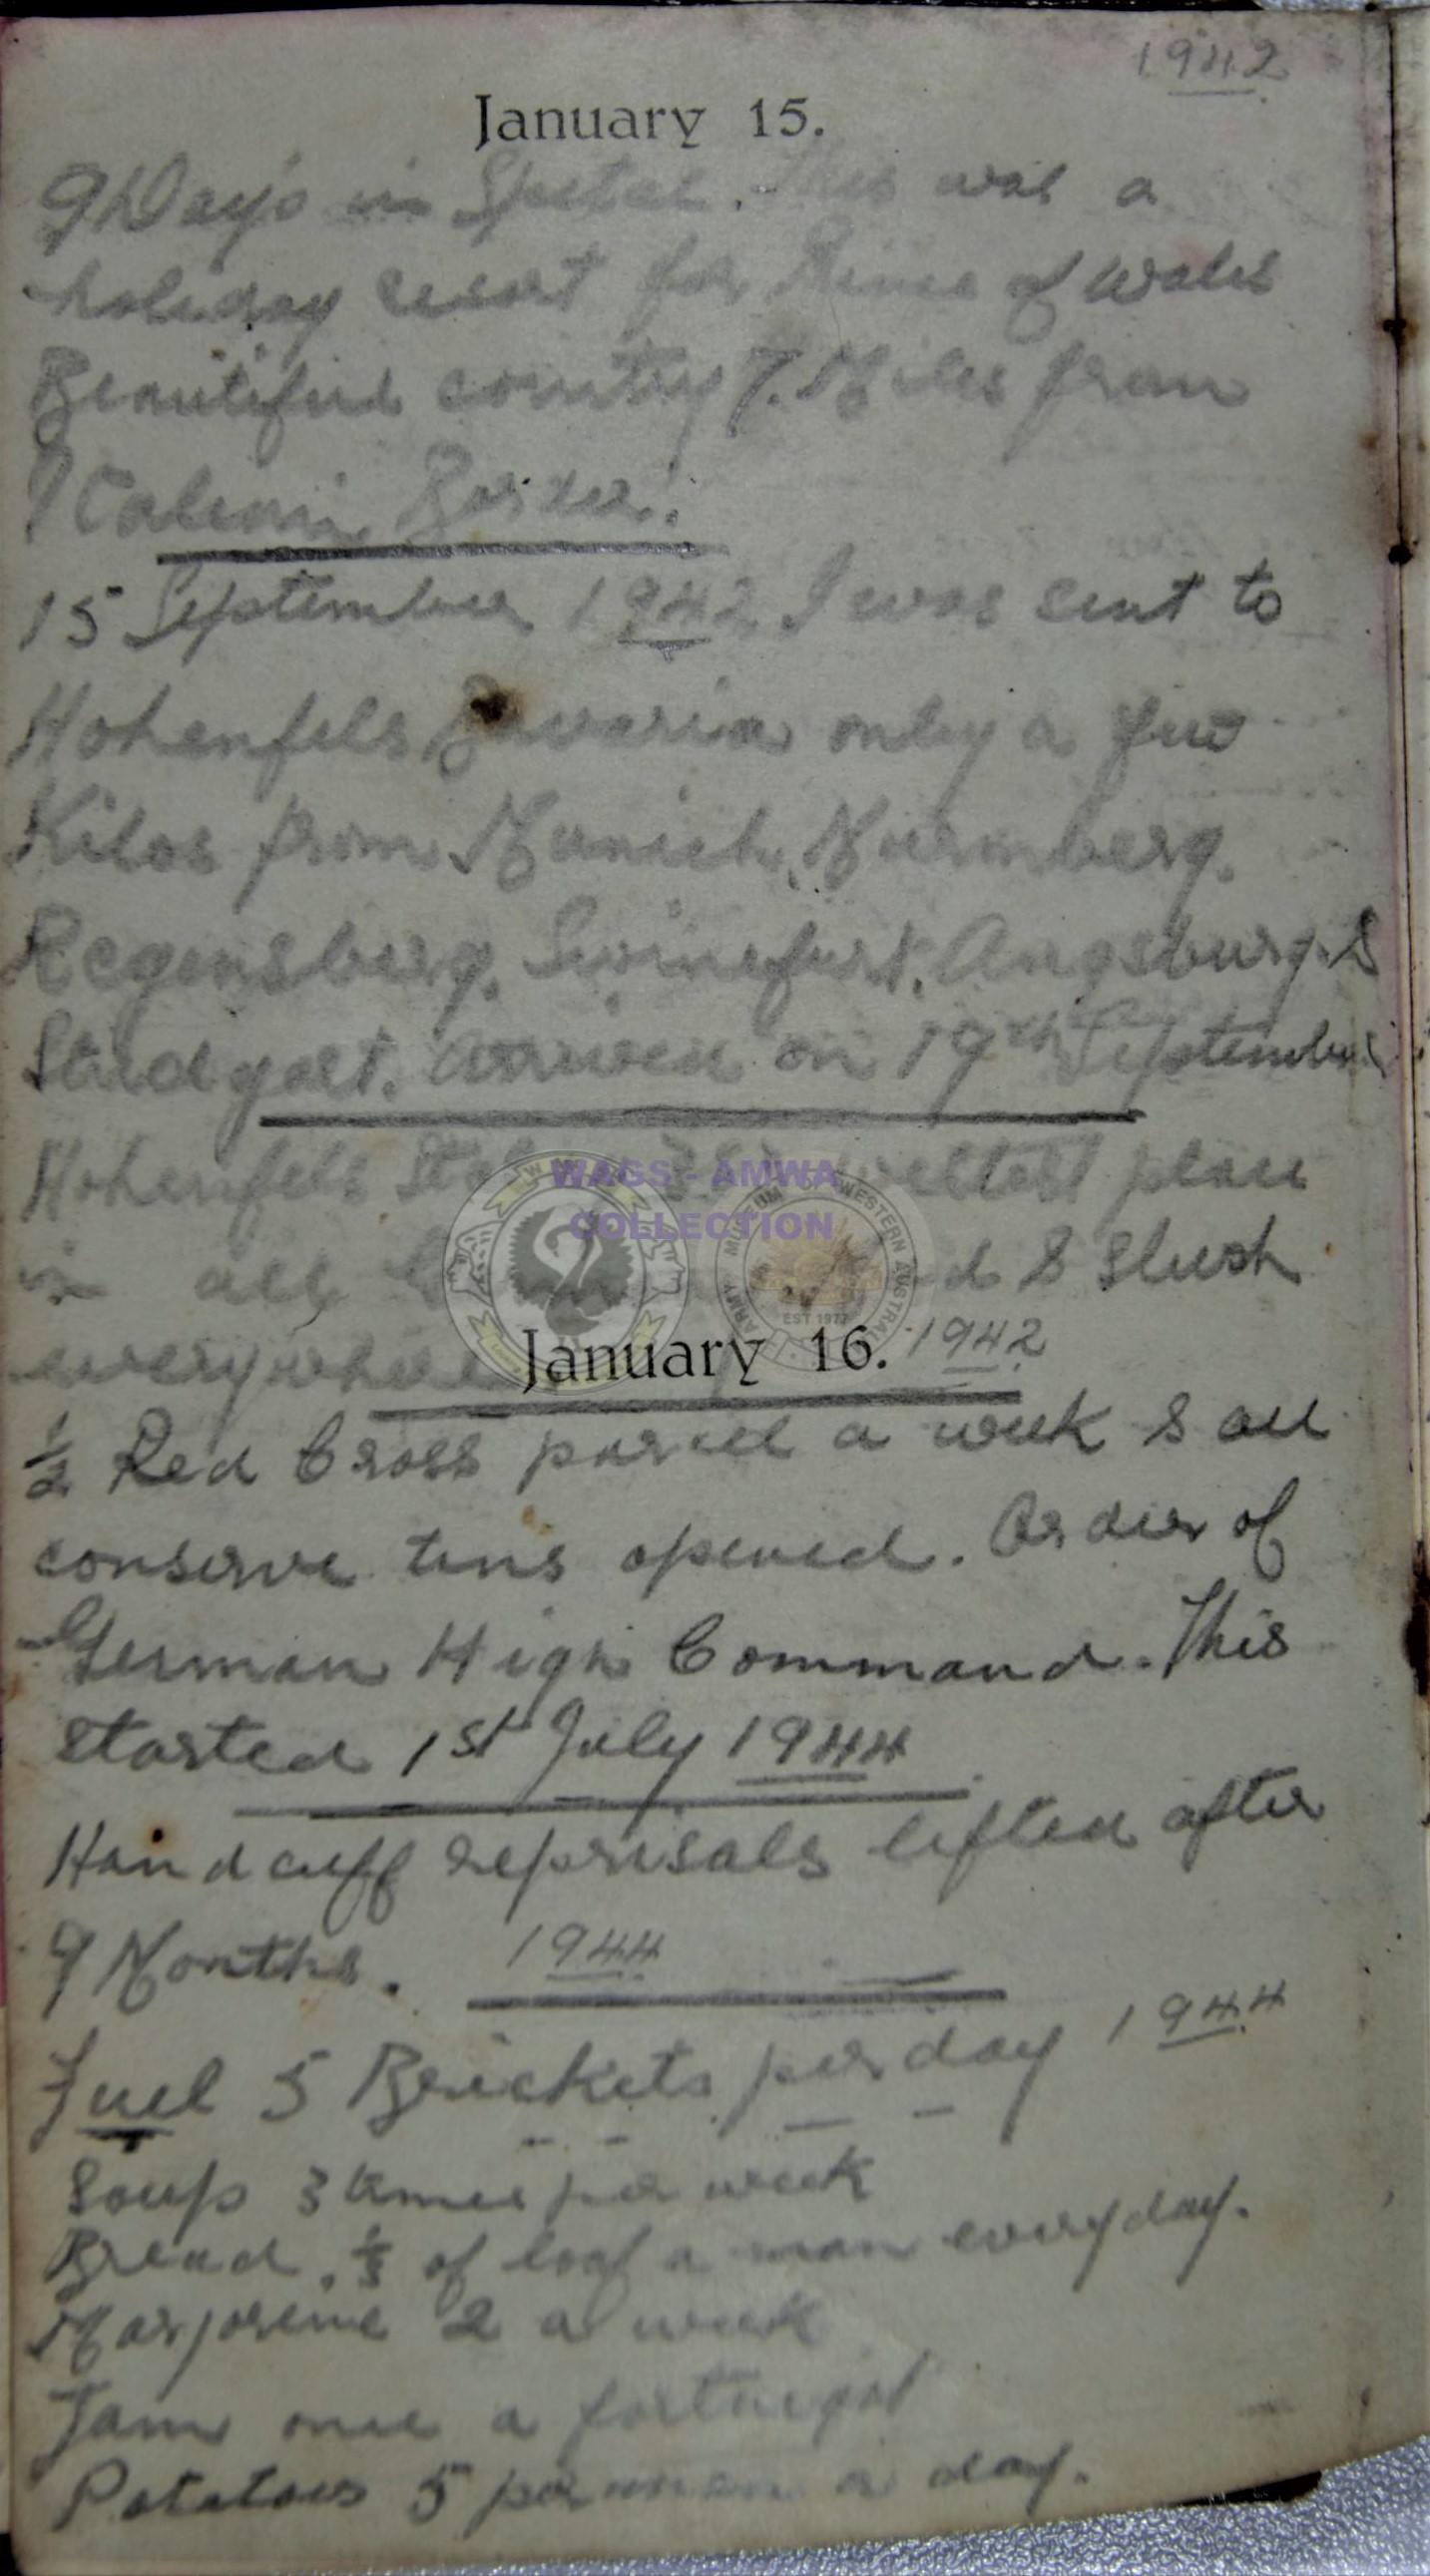 1942
January 15.
9 Days in Spital. This was a
holiday resort for Prince of Wales
Beautiful country 7. Miles from
Italian Border.
15 September 1942 I was sent to
Hohenfels Bavaria only a few
Kilos from Munich, Nurmberg.
Regensberg. Swinefurt. Augsburg. &
Studgart. Arrived on 19th September
Hohenfels place
in all & slush
everywhere
WAGS - AMWA
COLLECTION
ARMY MUSEUM OF WESTERN AUSTRALIA
EST 1977
January 16. 1942
1/2 Red Cross parcel a week & all
conserve tins opened. Order of
German High Command. This
started 1st July 1944
Handcuff reprisals lifted after
9 Months. 1944
Fuel 5 Brickets per day 1944
Soup 3 times per week
Bread. 1/5 of loaf a man everyday.
Marjorine 2 a week
Jam once a fortnight
Potatoes 5 per man a day.